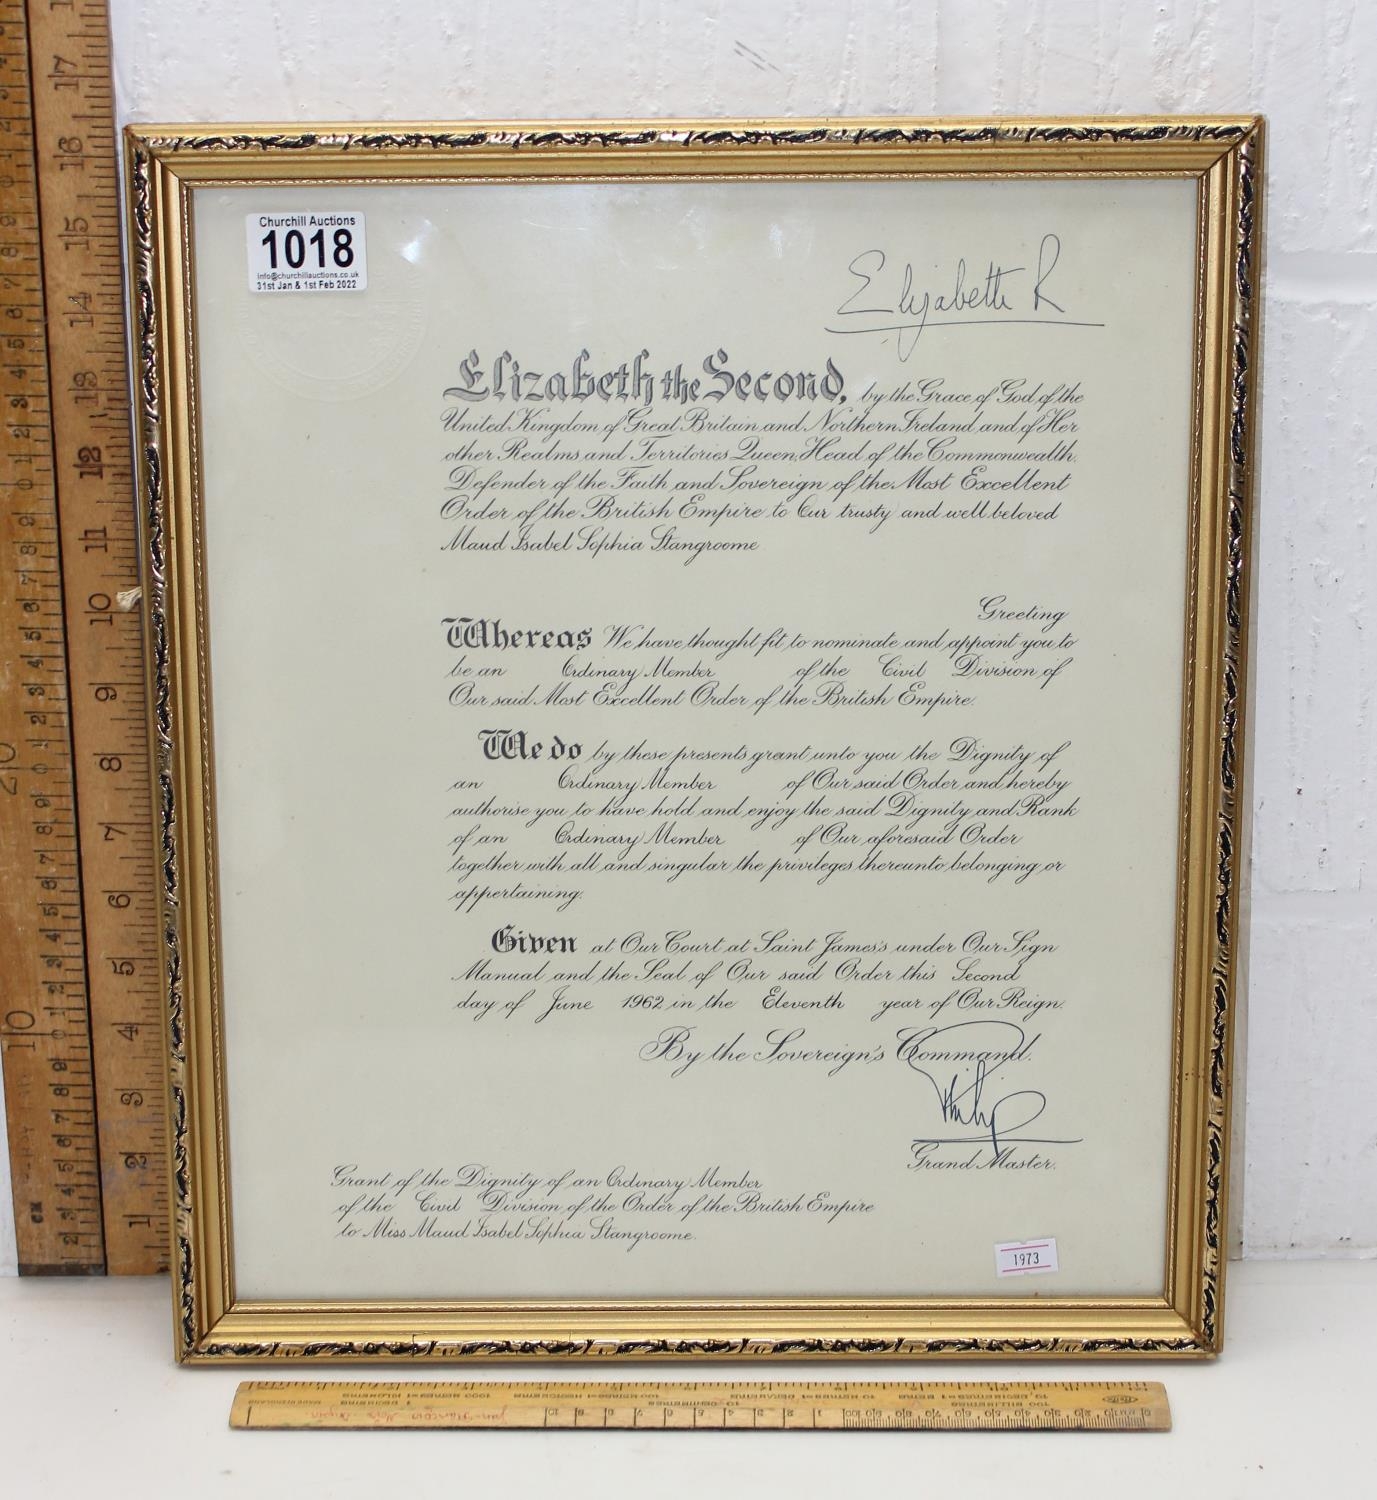 Churchill Auctions
1018
info@churchillauctions.co.uk
31st Jan & 1st Feb 2022
Elizabeth R
Elizabeth the Second, by the Grace of God of the
United Kingdom of Great Britain and Northern Ireland and of Her
other Realms and Territories Queen, Head of the Commonwealth,
Defender of the Faith and Sovereign of the Most Excellent
Order of the British Empire to Our trusty and well beloved
Maud Isabel Sophia Stangroome
Greeting
Whereas We have thought fit to nominate and appoint you to
be an Ordinary Member of the Civil Division of
Our said Most Excellent Order of the British Empire.
We do by these presents grant unto you the Dignity of
an Ordinary Member of Our said Order and hereby
authorise you to have hold and enjoy the said Dignity and Rank
of an Ordinary Member of Our aforesaid Order
together with all and singular the privileges thereunto belonging or
appertaining.
Given at Our Court at Saint James's under Our Sign
Manual and the Seal of Our said Order this Second
day of June 1962 in the Eleventh year of Our Reign.
By the Sovereign's Command.
Philip
Grand Master.
Grant of the Dignity of an Ordinary Member
of the Civil Division of the Order of the British Empire
to Miss Maud Isabel Sophia Stangroome.
1973
17
16
15
14
13
12
11
10
9
8
7
6
5
4
3
2
1
20
10
CM